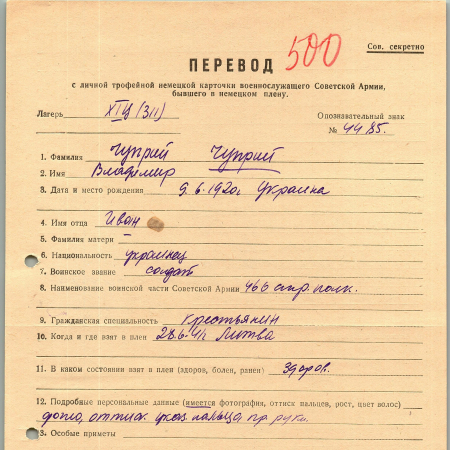 500
Сов. секретно
ПЕРЕВОД
с личной трофейной немецкой карточки военнослужащего Советской Армии,
бывшего в немецком плену.
Лагерь XIЦ (311)
Опознавательный знак
№ 4485.
1. Фамилия Чуприй Чуприй
2. Имя Владимир
3. Дата и место рождения 9.6.1920г Украина
4. Имя отца Иван
5. Фамилия матери –
6. Национальность украинец
7. Воинское звание солдат
8. Наименование воинской части Советской Армии 466 стр. полк.
9. Гражданская специальность крестьянин
10. Когда и где взят в плен 28.6.41 Литва
11. В каком состоянии взят в плен (здоров, болен, ранен) Здоров.
12. Подробные персональные данные (имеется фотография, оттиск пальцев, рост, цвет волос)
фото, оттиск указ. пальца пр. руки.
3. Особые приметы